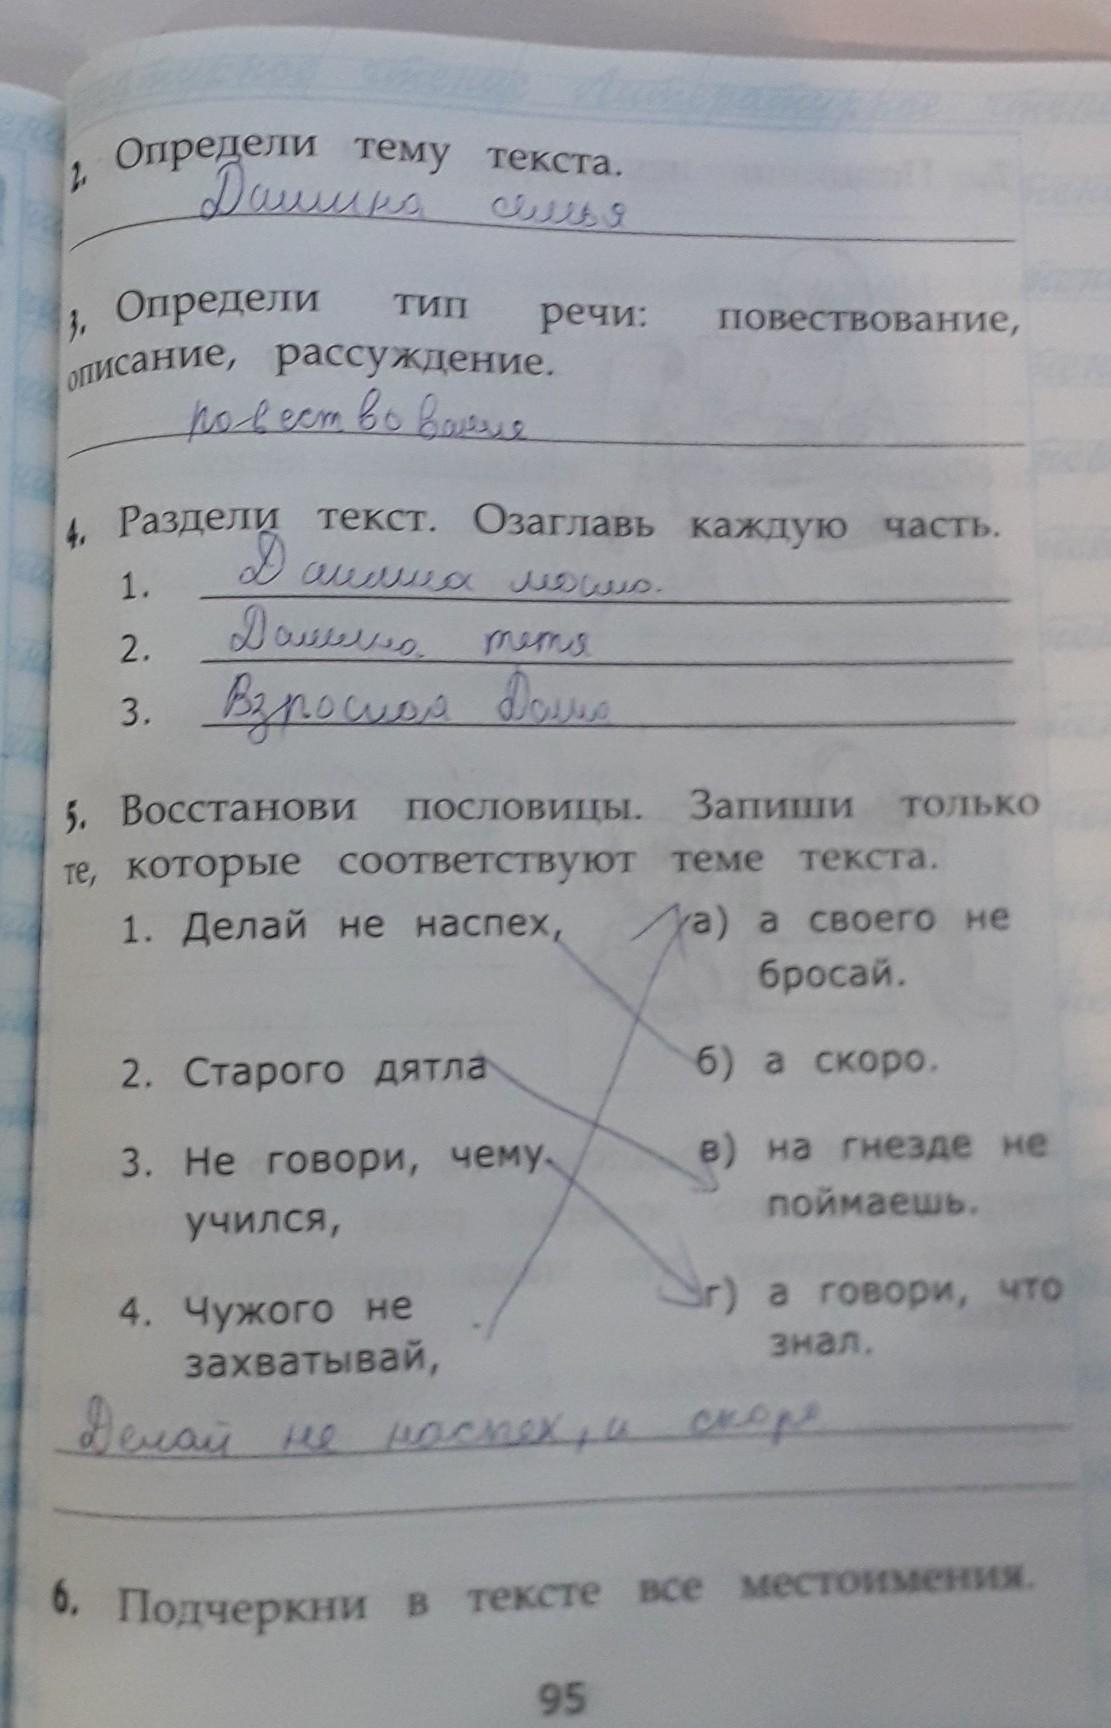 Литературное чтение Литературное чтение
2. Определи тему текста.
Дашина семья
3. Определи тип речи: повествование,
описание, рассуждение.
повествование
4. Раздели текст. Озаглавь каждую часть.
1. Дашина мама.
2. Дашина тетя
3. Взрослая Даша
5. Восстанови пословицы. Запиши только
те, которые соответствуют теме текста.
1. Делай не наспех, а) а своего не
бросай.
2. Старого дятла б) а скоро.
3. Не говори, чему в) на гнезде не
учился, поймаешь.
4. Чужого не г) а говори, что
захватывай, знал.
Делай не наспех, и скоро
6. Подчеркни в тексте все местоимения.
95